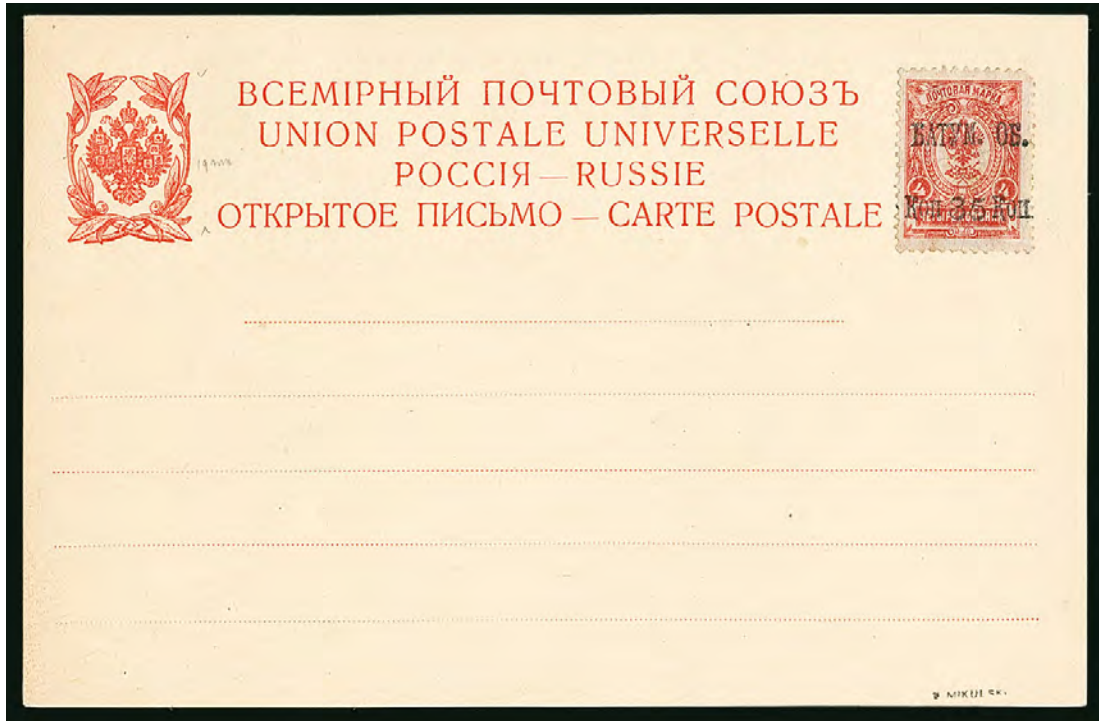 ВСЕМІРНЫЙ ПОЧТОВЫЙ СОЮЗЪ
UNION POSTALE UNIVERSELLE
РОССІЯ — RUSSIE
ОТКРЫТОЕ ПИСЬМО — CARTE POSTALE
ПОЧТОВАЯ МАРКА
БАТУМ. ОБ.
4 4
Коп 35 Коп
MIKULSKI